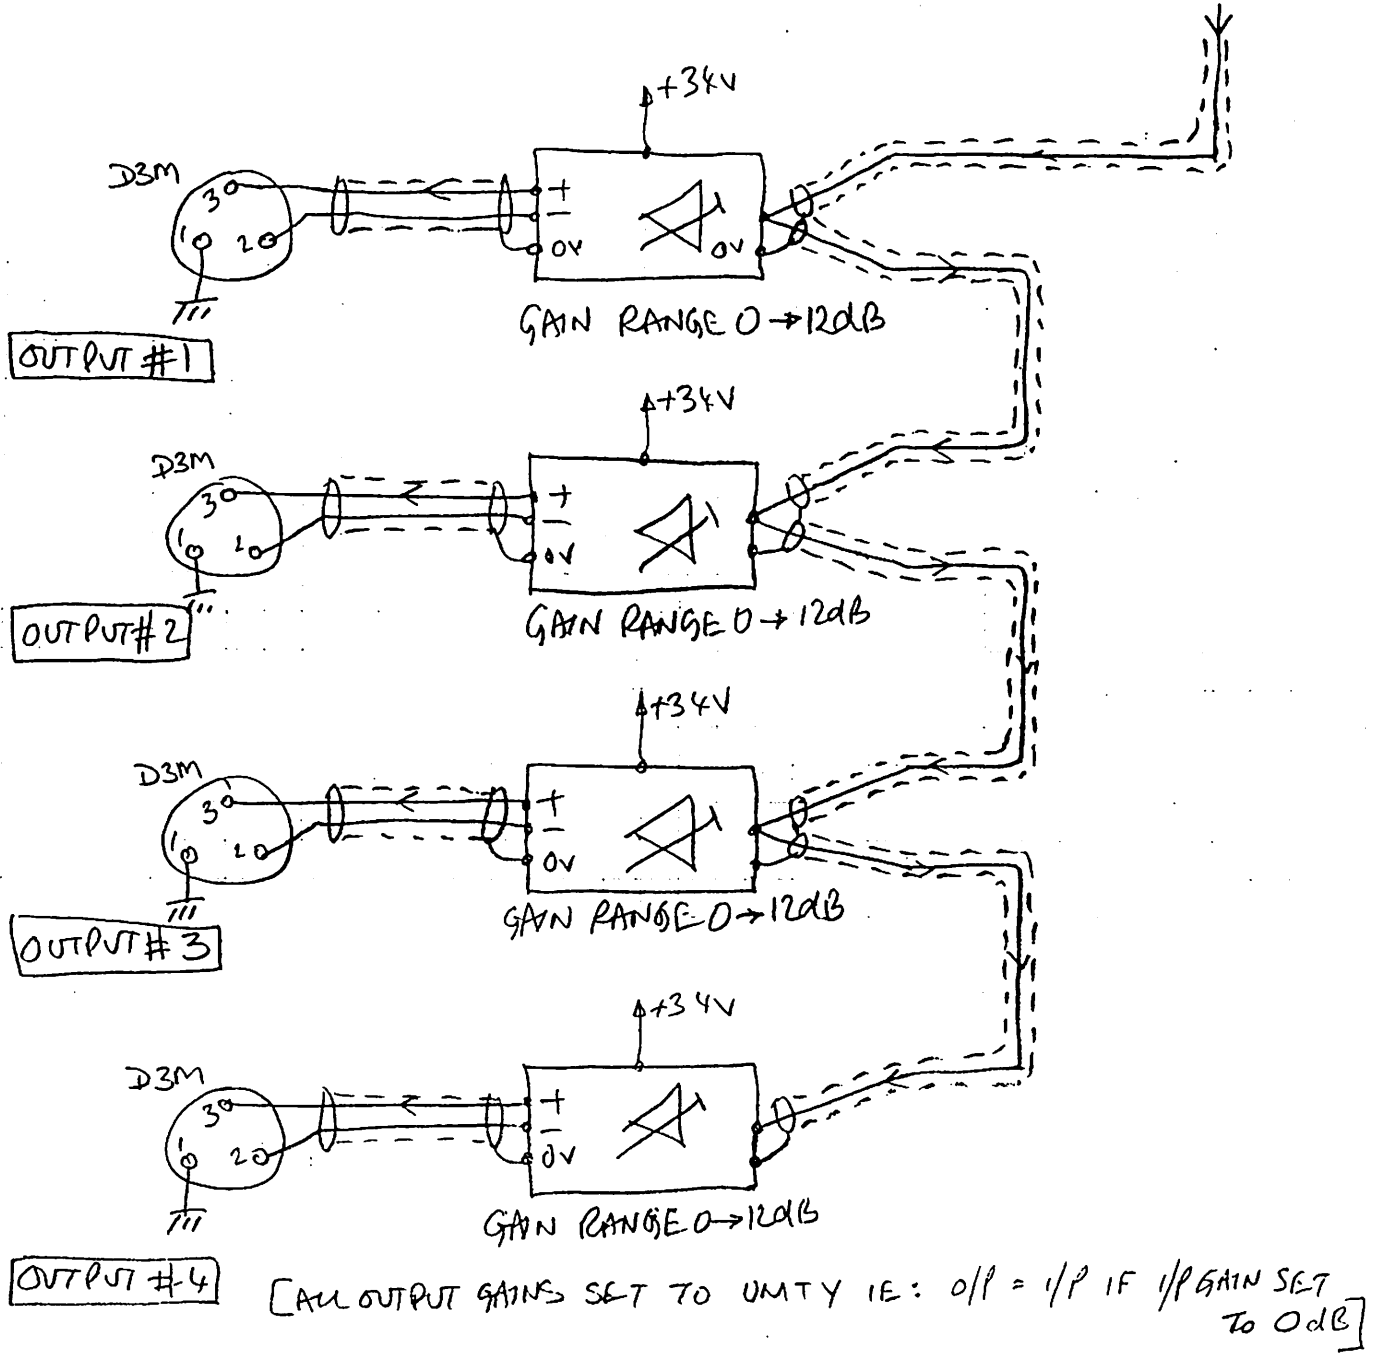 +34V
D3M
3
1
2
+
-
0V
0V
GAIN RANGE 0→12dB
OUTPUT #1
+34V
D3M
3
1
2
+
-
0V
GAIN RANGE 0→12dB
OUTPUT #2
+34V
D3M
3
1
2
+
-
0V
GAIN RANGE 0→12dB
OUTPUT #3
+34V
D3M
3
1
2
+
-
0V
GAIN RANGE 0→12dB
OUTPUT #4
[ALL OUTPUT GAINS SET TO UNITY IE: O/P = I/P IF I/P GAIN SET
TO 0dB]